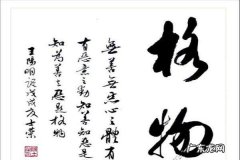 格物
無善無惡心之體有
善有惡意之動知善知惡是良
知為善去惡是格物
王陽明語戊戌